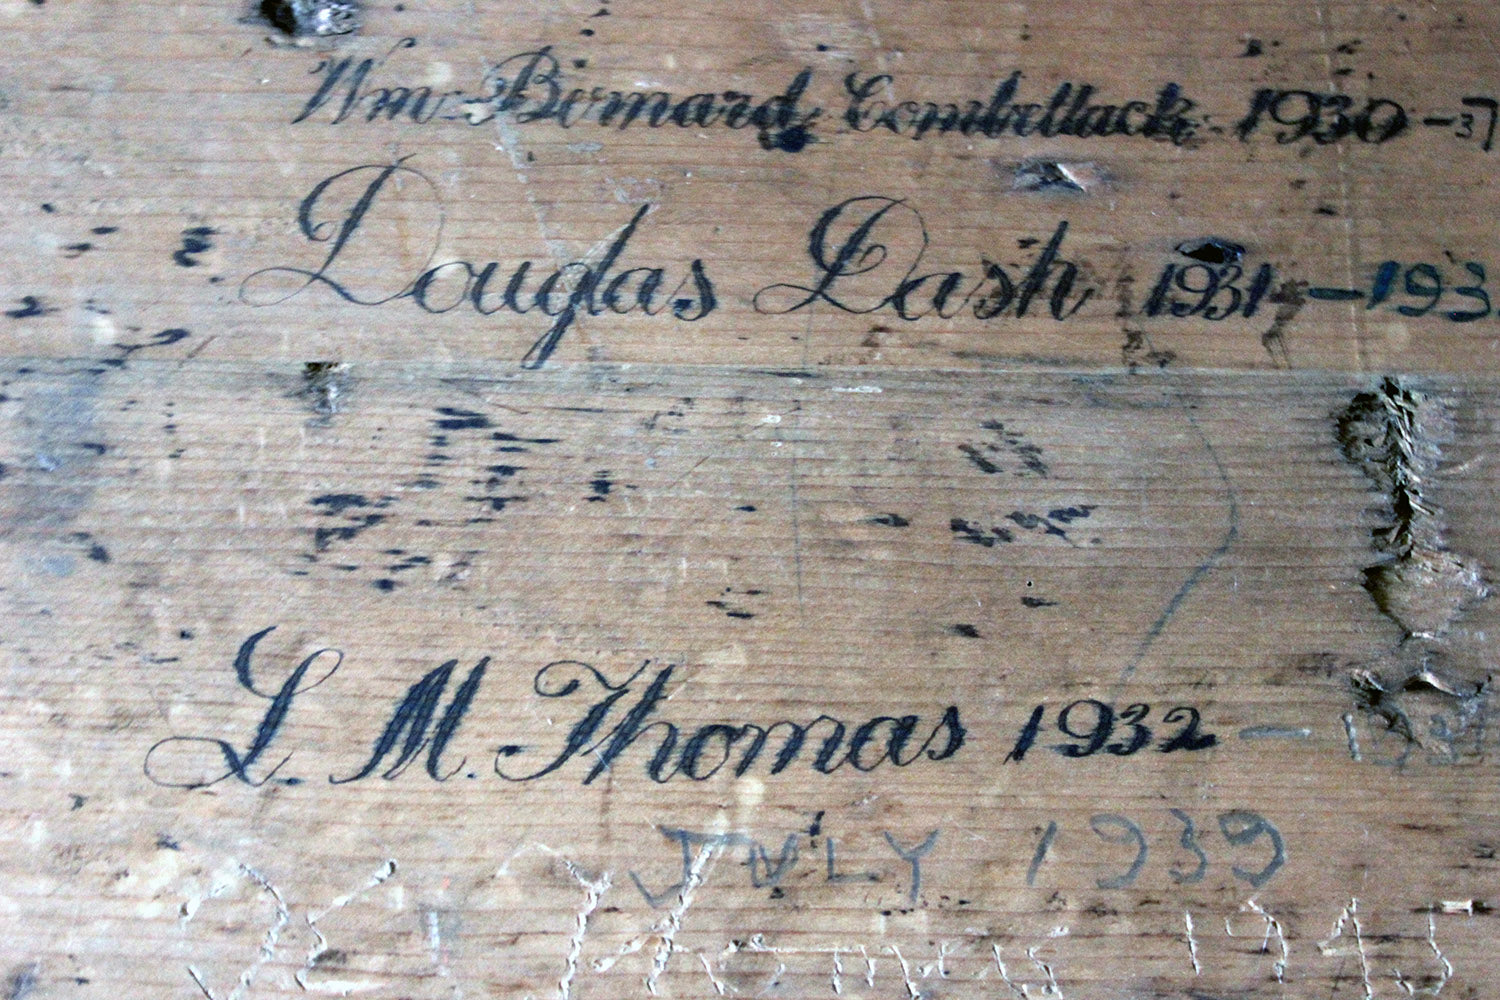 Wm Bernard Combellack. 1930-37
Douglas Dash 1931-193
L. M. Thomas 1932 -
JULY 1939
Thomas 1945